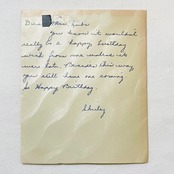 Dear Miss Zubu
You know it wouldn't
really be a happy birthday
wish from me unless it
were late. Besides this way
you still have one coming
so Happy Birthday.
Shirley